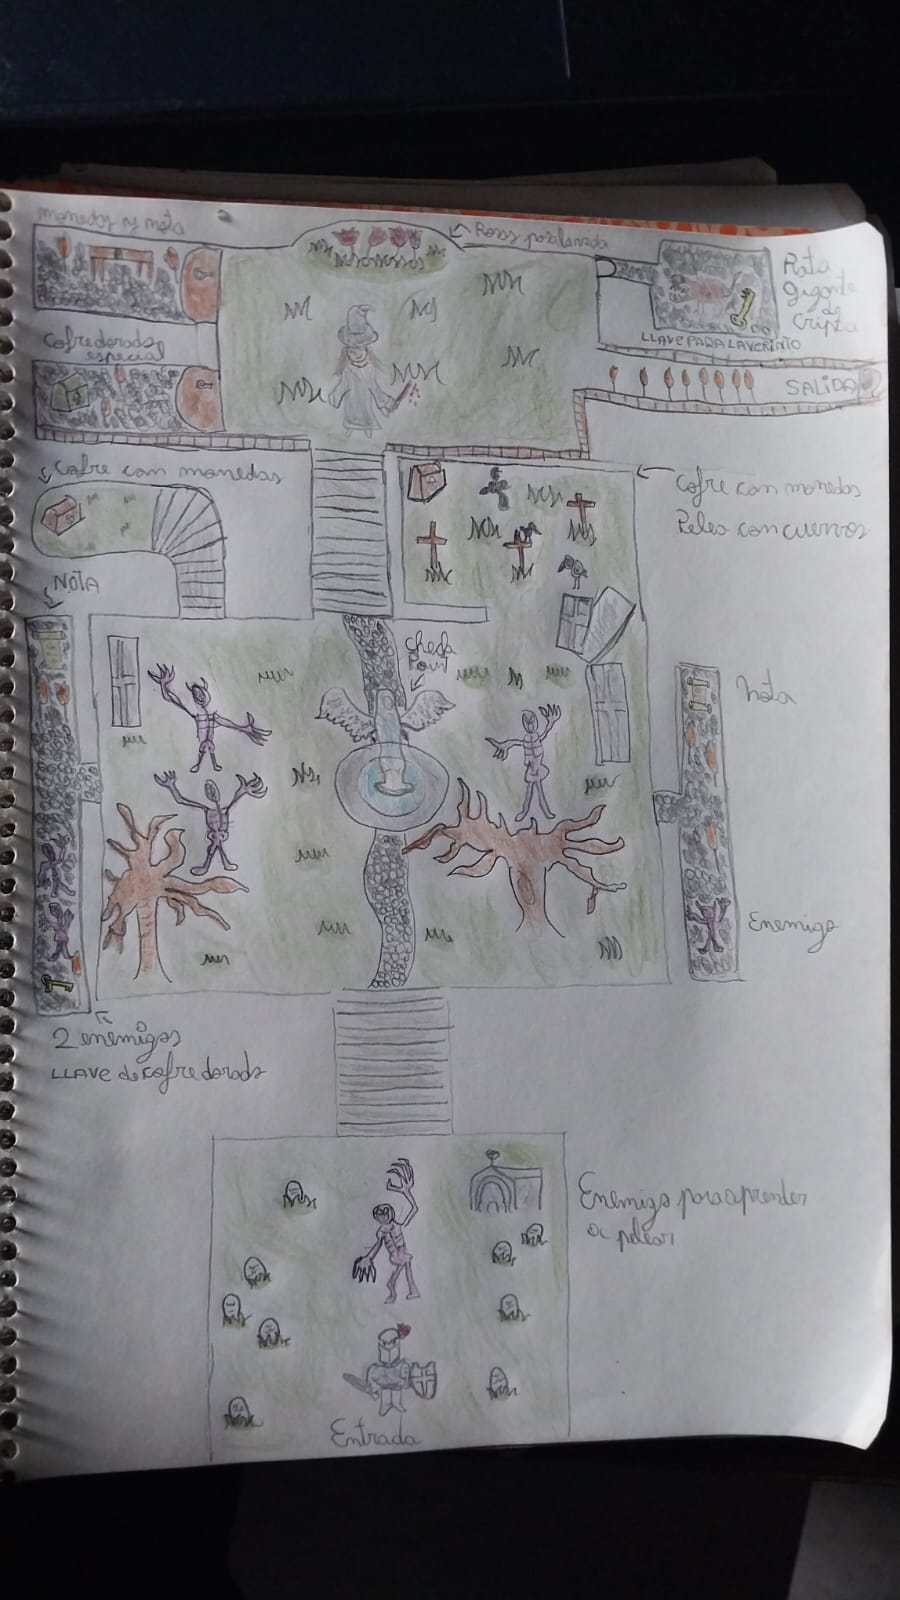 monedas y nota
Rosas para la viuda
Rata
Gigante
de
Cripta
LLAVE PARA LAVERINTO
Cofre dorado
especial
SALIDA
Cofre con monedas
Cofre con monedas
Pelea con cuervos
NOTA
Check
Point
Nota
Enemigo
2 enemigos
LLAVE de cofre dorado
Enemigo para aprender
a pelear
Entrada